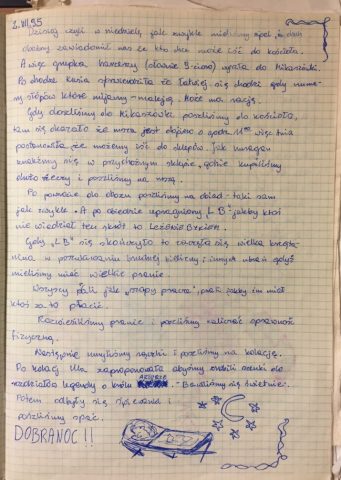 2.VII.95
Dzisiaj czyli w niedzielę jak zwykle mieliśmy apel, na którym
druhny zawiadomiły nas że kto chce może iść do kościoła.
A więc grupka harcerzy (głównie 9-tiono) wyszła do Mikaszówki.
Po drodze Kusia opowiedziała że łatwiej się chodzi gdy nume-
ry słupów które mijamy - maleją. Może ma rację.
Gdy doszliśmy do Mikaszówki poszliśmy do kościoła,
tam się okazało że msza jest dopiero o godz. 11⁰⁰ więc
postanowiła że możemy iść do sklepów. Jak
znaleźliśmy się w przydrożnym sklepie, gdzie kupiliśmy
dużo rzeczy i poszliśmy na mszę.
Po powrocie do obozu poszliśmy na obiad - taki sam
jak zwykle. A po obiedzie upragniony "LB" jakby ktoś
nie wiedział ten skrót to Leżenie Bykiem.
Gdy "LB" się skończyło to zaczęła się wielka
nina w poszukiwaniu brudnej bielizny i innych ubrań gdyż
mieliśmy mieć wielkie pranie.
Wszyscy prali jak "szopy pracze", prali jakby im miał
ktoś za to płacić.
Rozwiesiliśmy pranie i poszliśmy zaliczać sprawność
fizyczną.
Następnie umyliśmy rączki i poszliśmy na kolację.
Po kolacji Ula zaproponowała abyśmy zrobili scenki do
rozdziału legendy o królu ARTURZE - Bawiliśmy się świetnie.
Potem odbyła się śpiewanka i
poszliśmy spać.
DOBRANOC!!